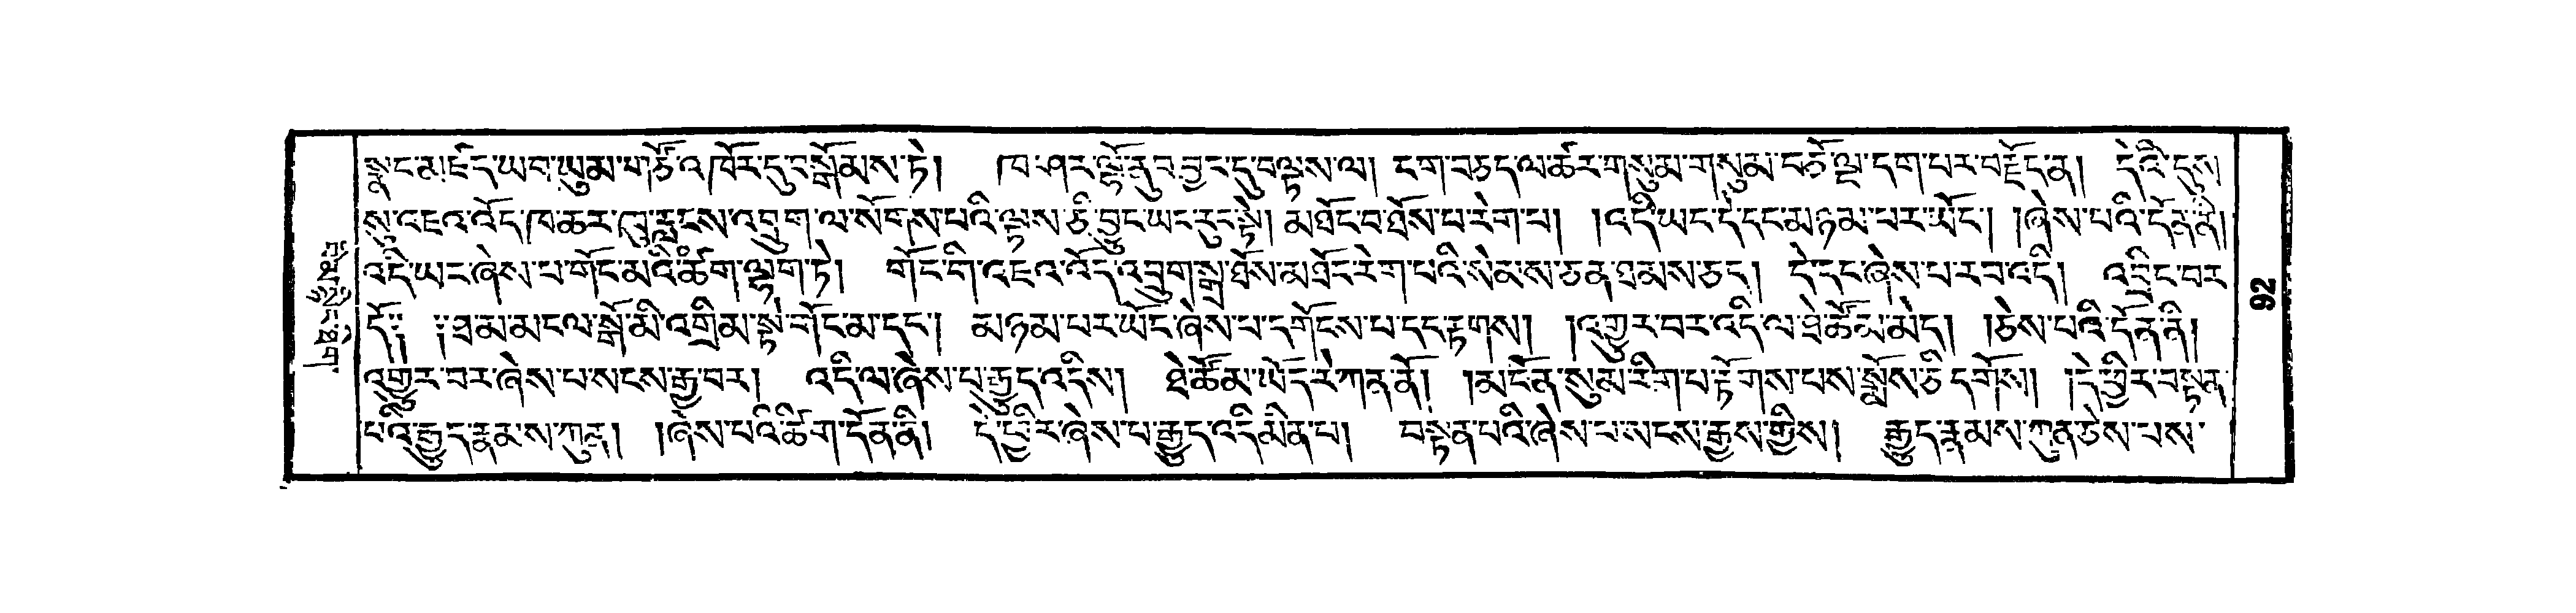 སྣང་མཛད་ཡབ་ཡུམ་གཙོ་འཁོར་དུ་བསྒོམས་ཏེ། ཁ་ཤར་ལྷོ་ནུབ་བྱང་དུ་བལྟས་ལ། ངག་བཅད་ལ་ཚར་གསུམ་གསུམ་ངཅོ་ལྔ་དག་པར་བརྗོད་ན། དེའི་དུས
སུ་འཇའ་འོད་ཁ་ཆར་ལྷ་རླངས་འབྲུག་ལ་སོགས་པའི་ལྟས་ཅི་བྱུང་ཡང་རུང་སྟེ། མཐོང་བ་ཐོས་པ་རེག་པ། །འདི་ཡང་དེ་དང་མཉམ་པར་ཡོང་། །ཞེས་པའི་དོན་ནི།
འདི་ཡང་ཞེས་པ་གོང་མའི་ཚིག་ལྷག་ཏེ། གོང་གི་འཇའ་འོད་འབྲུག་སྒྲ་ཐོས་མཐོང་རེག་པའི་སེམས་ཅན་ཐམས་ཅད། དེ་དང་ཞེས་པ་རབ་འདི། འབྲིང་བར
དོ༔ ༔ཐམ་མངལ་སྒོ་མི་འགྲིམ་སྟེ་གོང་མ་དང་། མཉམ་པར་ཡོང་ཞེས་པ་དགོངས་པ་དང་རྟགས། །འགྱུར་བར་འདི་ལ་ཐེ་ཚོམ་མེད། །ཅེས་པའི་དོན་ནི།
འགྱུར་བར་ཞེས་པ་སངས་རྒྱ་བར། འདི་ལ་ཞེས་པ་རྒྱུད་འདིས། ཐེ་ཚོམ་ཡེ་དོ་རེ་ཀན་ནོ། །མངོན་སུམ་རིག་པ་རྟོགས་པས་སློས་ཅི་དགོས། །དེ་ཕྱིར་བསྟན
པའི་རྒྱུད་རྣམས་ཀུན། །ཞེས་པའི་ཚིག་དོན་ནི། དེ་ཕྱིར་ཞེས་པ་རྒྱུད་འདི་མིན་པ། བསྟན་པའི་ཞེས་པ་སངས་རྒྱས་ཀྱིས། རྒྱུད་རྣམས་ཀུན་ཅེས་པས་